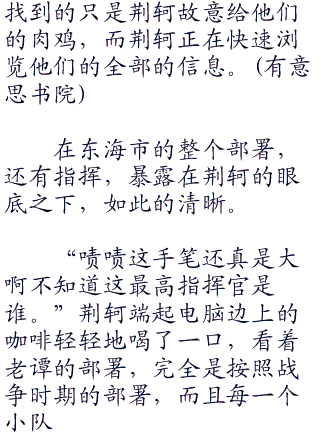 找到的只是荆轲故意给他们
的肉鸡，而荆轲正在快速浏
览他们的全部的信息。(有意
思书院)
在东海市的整个部署，
还有指挥，暴露在荆轲的眼
底之下，如此的清晰。
“啧啧这手笔还真是大
啊不知道这最高指挥官是
谁。”荆轲端起电脑边上的
咖啡轻轻地喝了一口，看着
老谭的部署，完全是按照战
争时期的部署，而且每一个
小队